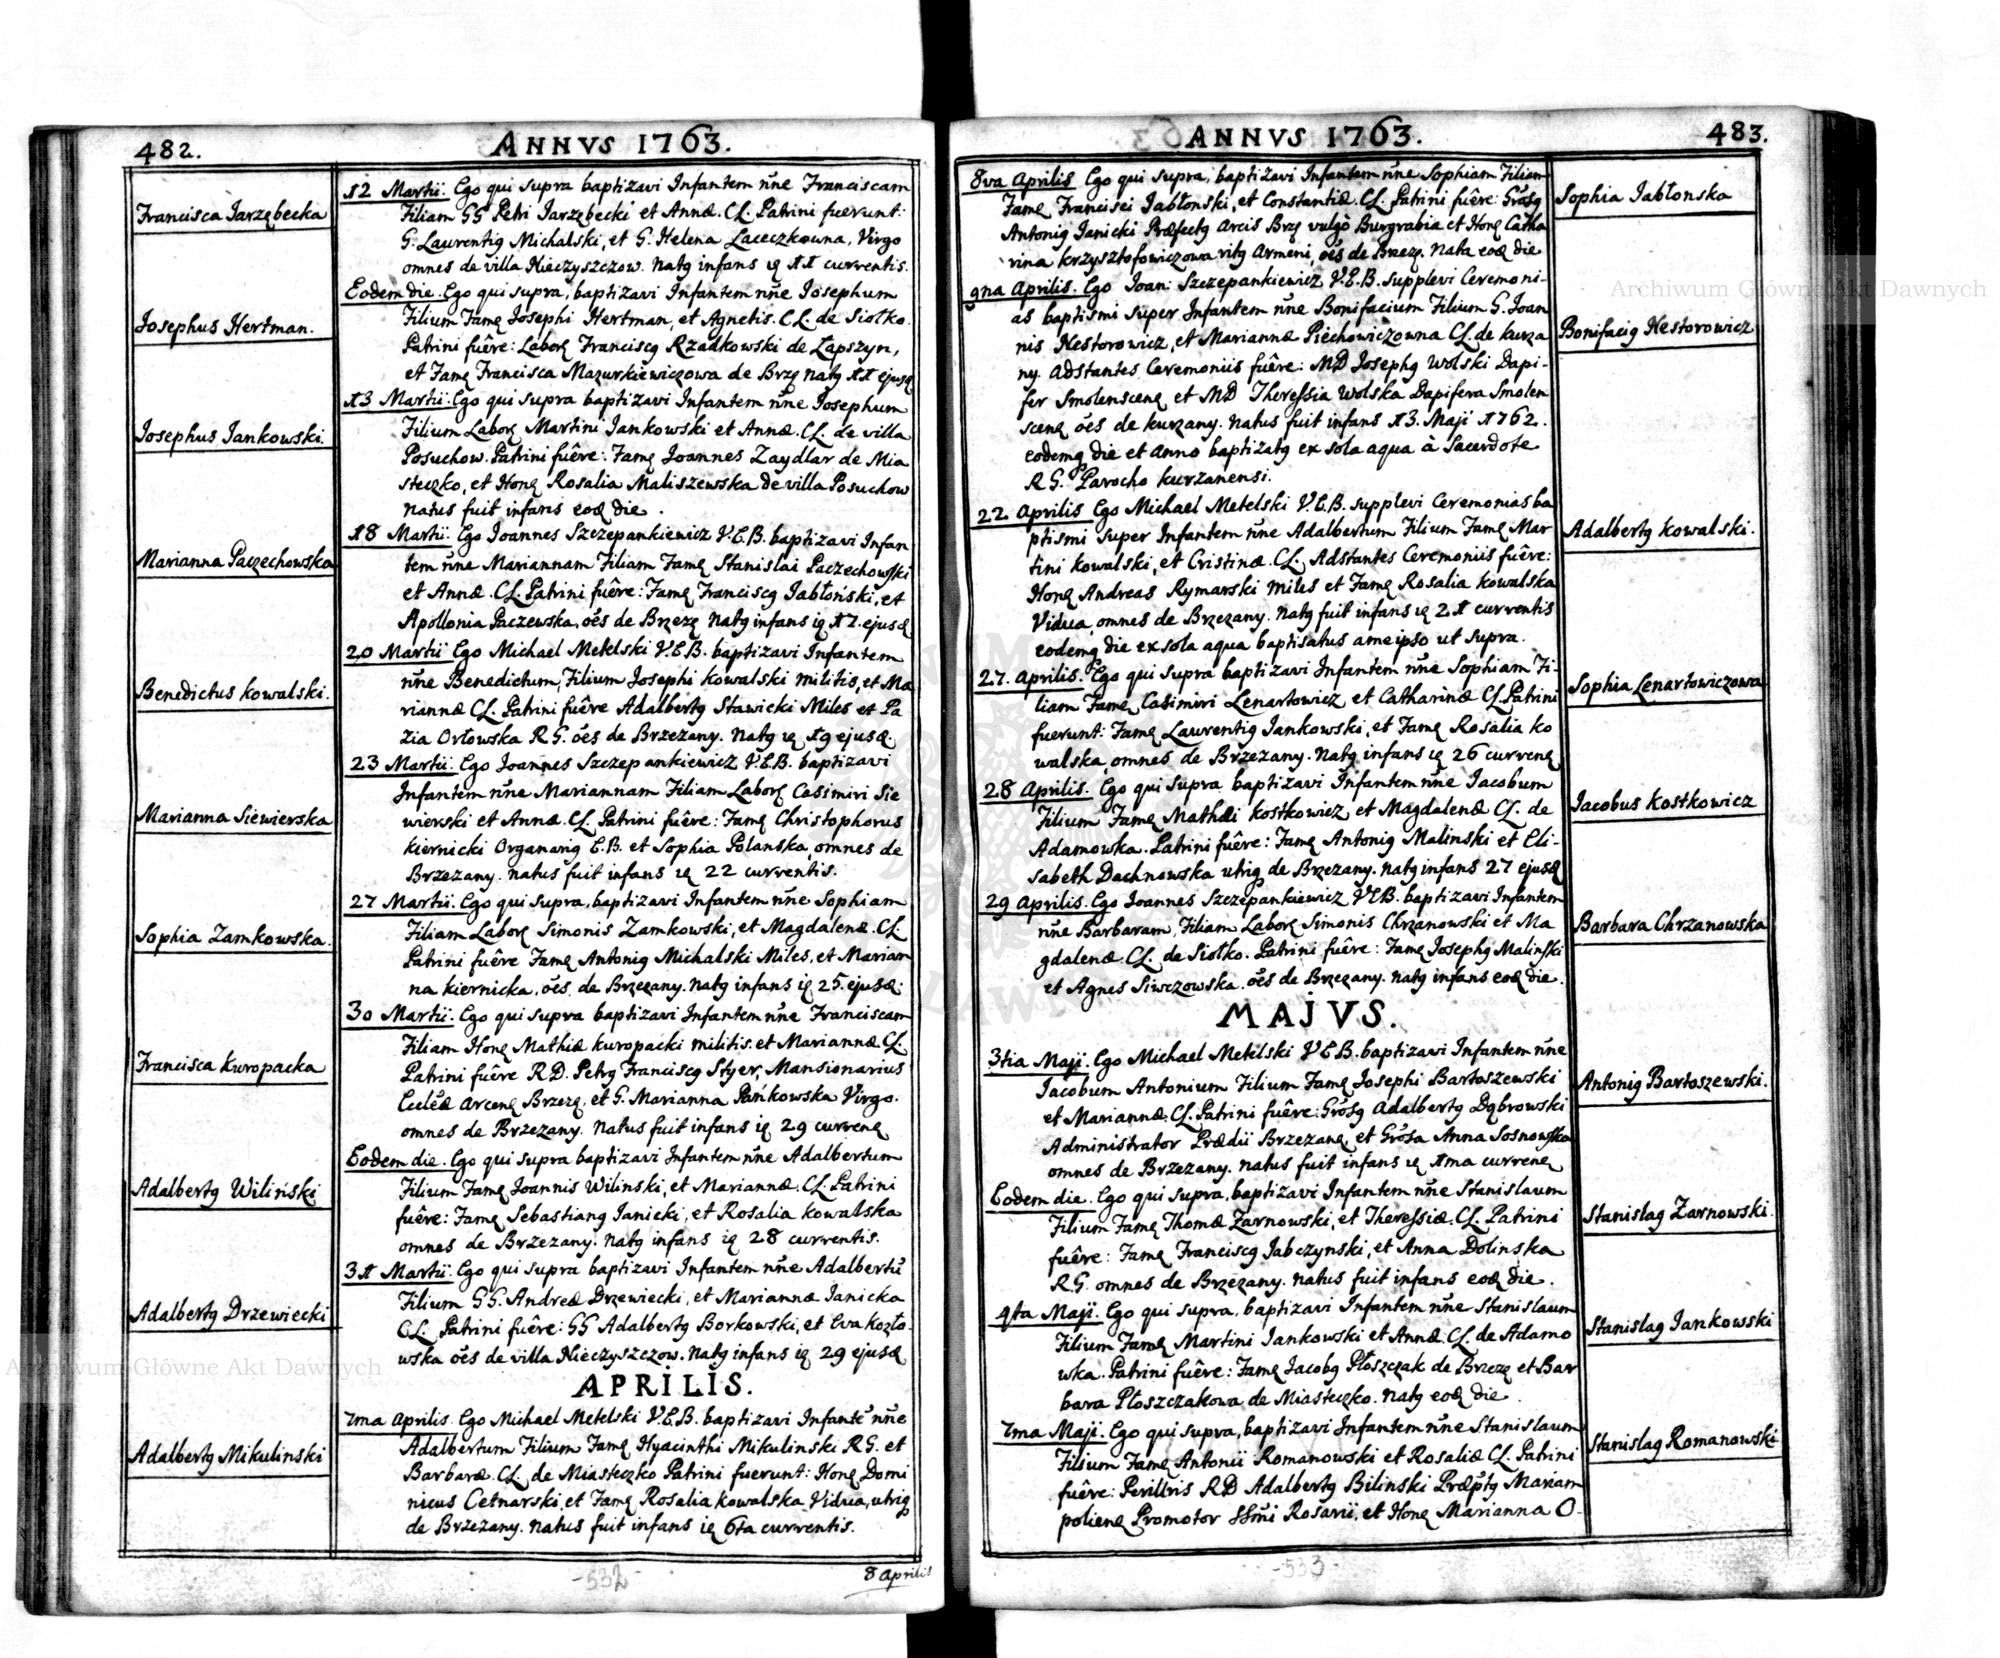 482.
ANNVS 1763.
Francisca Jarzębecka
12 Martii. Ego qui supra baptizavi Infantem nñe Franciscam
Filiam GG Petri Jarzębecki et Annæ. CL. Patrini fuerunt:
G. Laurentig Michalski, et G. Helena Laceczkowna, Virgo
omnes de villa Nieczyszczow. Natg infans ię 11 currentis.
Josephus Hertman.
Eodem die. Ego qui supra, baptizavi Infantem nñe Josephum
Filium Famę Josephi Hertman, et Agnetis. CL. de Siołko.
Patrini fuêre: Laborę Franciscg Rzadkowski de Łapszyn,
et Famę Francisca Mazurkiewiczowa de Brzę natg 11 ejusę
Josephus Jankowski.
13 Martii. Ego qui supra baptizavi Infantem nñe Josephum
Filium Laborę Martini Jankowski et Annæ. CL. de villa
Posuchow. Patrini fuêre: Famę Joannes Zaydlar de Mia
steczko, et Honę Rosalia Maliszewska de villa Posuchow
natus fuit infans eoę die.
Marianna Paczechowska
18 Martii. Ego Joannes Szczepankiewicz V.E.B. baptizavi Infan
tem nñe Mariannam Filiam Famę Stanislai Paczechowski
et Annæ. CL. Patrini fuêre: Famę Franciscg Jabłoński, et
Apollonia Paczewska, oẽs de Brzezę Natg infans ię 17. ejusę
Benedictus Kowalski.
20 Martii Ego Michael Metelski V.E.B. baptizavi Infantem
nñe Benedictum, Filium Josephi Kowalski militis, et Ma
riannæ CL. Patrini fuêre Adalbertg Stawicki Miles et Pa
zia Orłowska R.G. oẽs de Brzezany. Natg ię 19 ejusę.
Marianna Siewierska
23 Martii. Ego Joannes Szczepankiewicz V.E.B. baptizavi
Infantem nñe Mariannam Filiam Laborę Casimiri Sie
wierski et Annæ. CL. Patrini fuêre: Famę Christophorus
Kiernicki Organarig E.B. et Sophia Polanska, omnes de
Brzezany. natus fuit infans ię 22 currentis.
Sophia Zamkowska.
27 Martii. Ego qui supra, baptizavi Infantem nñe Sophiam
Filiam Laborę Simonis Zamkowski, et Magdalenæ. CL.
Patrini fuêre Famę Antonig Michalski Miles, et Marian
na Kiernicka, oẽs de Brzezany. Natg infans ię 25. ejusę.
Francisca Kuropacka
30 Martii. Ego qui supra baptizavi Infantem nñe Franciscam
Filiam Honę Mathiæ Kuropacki militis. et Mariannæ. CL.
Patrini fuêre R.D. Petrg Franciscg Styer, Mansionarius
Eccleæ Arcenę Brzezę. et G. Marianna Pańkowska Virgo.
omnes de Brzezany. Natus fuit infans ię 29 currenę
Adalbertg Wiliński
Eodem die. Ego qui supra baptizavi Infantem nñe Adalbertum
Filium Famę Joannis Wilinski, et Mariannæ. CL. Patrini
fuêre: Famę Sebastiang Janicki, et Rosalia Kowalska
omnes de Brzezany. Natg infans ię 28 currentis.
Adalbertg Drzewiecki
31 Martii. Ego qui supra baptizavi Infantem nñe Adalbertũ
Filium GG. Andreæ Drzewiecki, et Mariannæ Janicka
CL. Patrini fuêre: GG Adalbertg Borkowski, et Eva Kozło-
wska oẽs de villa Nieczyszczow. Natg infans ię 29 ejusę
APRILIS.
Adalbertg Mikulinski
7ma Aprilis. Ego Michael Metelski V.E.B. baptizavi Infantẽ nñe
Adalbertum Filium Famę Hyacinthi Mikulinski R.G. et
Barbaræ. CL. de Miasteczko Patrini fuerunt: Honę Domi
nicus Cetnarski, et Famę Rosalia Kowalska Vidua, utrig
de Brzezany. Natus fuit infans ię 6ta currentis.
8 Aprilis
-532-
ANNVS 1763.
483.
Sophia Jabłonska
8va Aprilis Ego qui supra, baptizavi Infantem nñe Sophiam Filiam
Famę Francisci Jabłonski, et Constantiæ. CL. Patrini fuêre: Grõsg
Antonig Janicki Præfectg Arcis Brzę vulgò Burgrabia et Honę Catha
rina Krzysztofowiczowa ritg Armeni, oẽs de Brzezę. Nata eoę die
Bonifacig Nestorowicz
9na Aprilis. Ego Joan: Szczepankiewicz V.E.B. Supplevi Ceremoni-
as baptismi super Infantem nñe Bonifacium Filium G. Joan
nis Nestorowicz, et Mariannæ Piechowiczowna CL. de Kurza
ny. Adstantes Ceremoniis fuêre: MD Josephg Wolski Dapi-
fer Smolenscenę et MD Theressia Wolska Dapifera Smolen
scenę oẽs de Kurzany. Natus fuit infans 13. Maji 1762.
eodemg die et Anno baptizatg ex sola aqua à Sacerdote
R.G. Parocho Kurzanensi.
Adalbertg Kowalski.
22 Aprilis Ego Michael Metelski V.E.B. supplevi Ceremonias ba
ptismi super Infantem nñe Adalbertum Filium Famę Mar
tini Kowalski, et Cristinæ. CL. Adstantes Ceremoniis fuêre:
Honę Andreas Rymarski Miles et Famę Rosalia Kowalska
Vidua, omnes de Brzezany. Natg fuit infans ię 21 currentis
eodemg die ex sola aqua baptisatus ameipso ut supra.
Sophia Lenartowiczowa
27. Aprilis. Ego qui supra baptizavi Infantem nñe Sophiam Fi-
liam Famę Casimiri Lenartowicz et Catharinæ CL. Patrini
fuerunt: Famę Laurentig Jankowski, et Famę Rosalia Ko
walska, omnes de Brzezany. Natg infans ię 26 currenę
Jacobus Kostkowicz
28 Aprilis. Ego qui supra baptizavi Infantem nñe Jacobum
Filium Famę Mathæi Kostkowicz et Magdalenæ CL. de
Adamowka. Patrini fuêre: Famę Antonig Malinski et Eli-
sabeth Dachnowska utrig de Brzezany. Natg infans 27 ejusę
Barbara Chrzanowska
29 Aprilis. Ego Joannes Szczepankiewicz VEB. baptizavi Infantem
nñe Barbaram, Filiam Laborę Simonis Chrzanowski et Ma
gdalenæ. CL. de Siołko. Patrini fuêre: Famę Josephg Malinski
et Agnes Siwczowska. oẽs de Brzezany. Natg infans eoę die.
MAJVS.
Antonig Bartoszewski.
3tia Maji. Ego Michael Metelski V.E.B. baptizavi Infantem nñe
Jacobum Antonium Filium Famę Josephi Bartoszewski
et Mariannæ. CL. Patrini fuêre: Grõsg Adalbertg Dąbrowski
Administrator Prædii Brzezanę et Grõsa Anna Sosnowska
omnes de Brzezany. Natus fuit infans ię 1ma currenę
Stanislag Zarnowski.
Eodem die. Ego qui supra, baptizavi Infantem nñe Stanislaum
Filium Famę Thomæ Zarnowski, et Theressiæ. CL. Patrini
fuêre: Famę Franciscg Jabczynski, et Anna Dolinska
R.G. omnes de Brzezany. Natus fuit infans eoę die.
Stanislag Jankowski
4ta Maji. Ego qui supra, baptizavi Infantem nñe Stanislaum
Filium Famę Martini Jankowski et Annæ. CL. de Adamo
wka. Patrini fuêre: Famę Jacobg Płoszczak de Brzezę et Bar
bara Płoszczakowa de Miasteczko. Natg eoę die.
Stanislag Romanowski
7ma Maji. Ego qui supra, baptizavi Infantem nñe Stanislaum
Filium Famę Antonii Romanowski et Rosaliæ CL. Patrini
fuêre: Perillris RD Adalbertg Bilinski Præptg Mariam
polienę Promotor SSmi Rosarii, et Honę Marianna O-
-533-
Archiwum Główne Akt Dawnych
Archiwum Główne Akt Dawnych